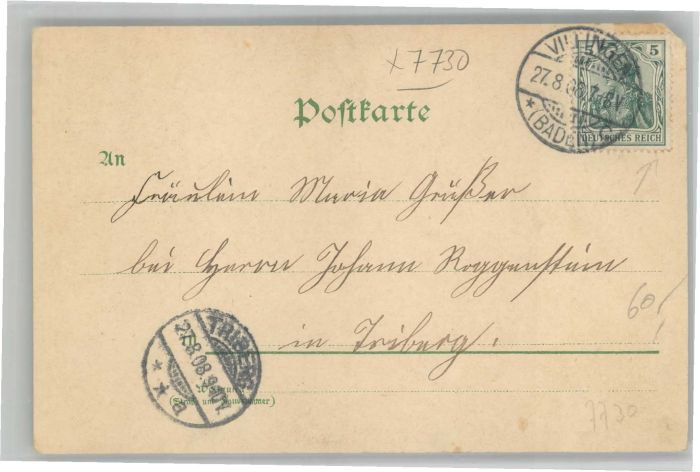 x 7730
VILLINGEN
27.8.08.7-8V
* (BADEN)
5
DEUTSCHES REICH
Postkarte
An
Fräulein Maria Grüßer
bei Herrn Johann Roggenstein
in Triberg.
60,-
TRIBERG
27.8.08.
* *
(Straße und Hausnummer)
7730